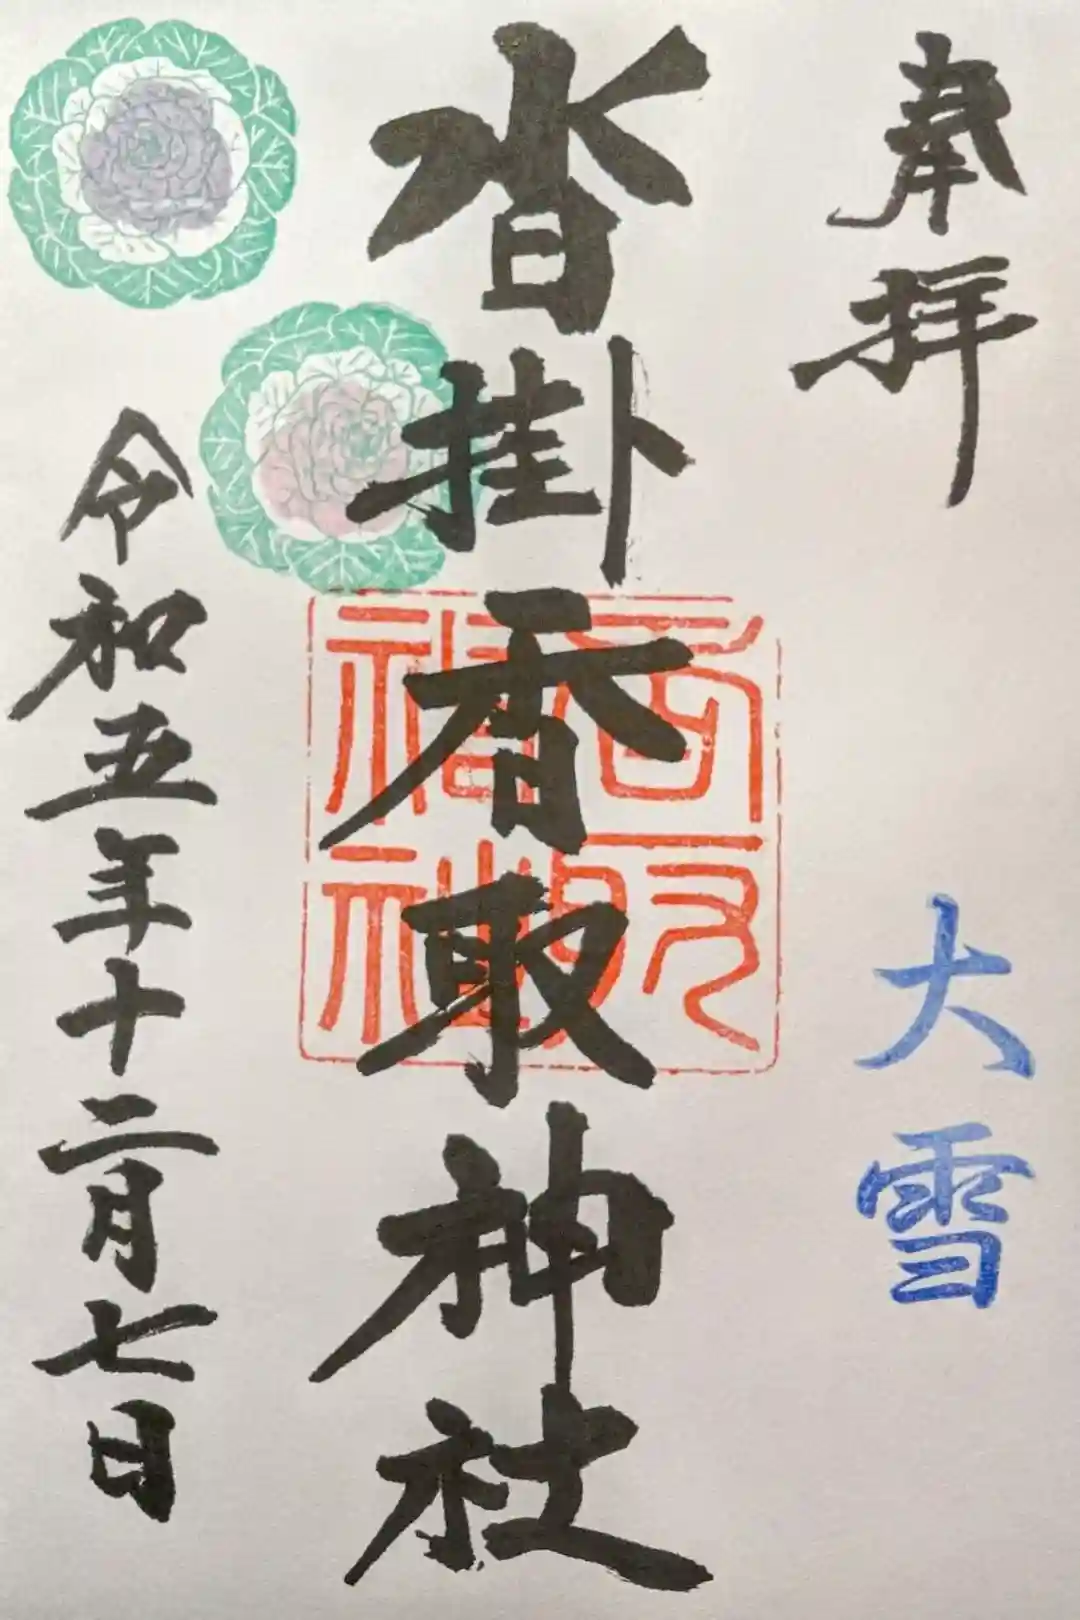 奉拝
大雪
沓掛香取神社
香取神社
令和五年十二月七日